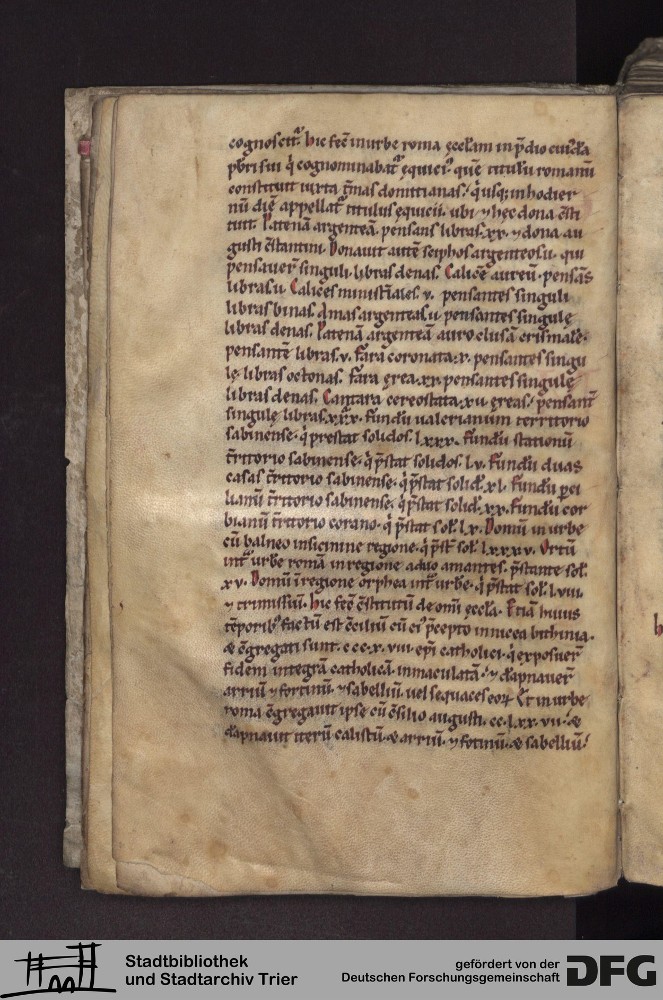 cognoscit᷑. hic fec̄ in urbe roma ęccl̄am in p̄dio cuiꝰdā
pb̄ri sui q̇ cognominabat᷑ ęquiciꝰ. quē titulū romanū
constituit iuxta t̄mas domitianas. q̇ usq; in hodier
nū diē appellat᷑ titulus ęquicii. ubi ⁊ hec dona c̄sti
tuit. Patenā argenteā. pensans libras. xx. ⁊ dona au
gusti c̄stantini. Donauit autē sciphos argenteos. u. qui
pensauer̄ singuli libras denas. Calicē aureū. pensās
libras. u. Calices minist̄iales. v. pensantes singuli
libras binas. amas argenteas. u. pensantes singulę
libras denas. Patenā argenteā auro clusā crismalē.
pensantē libras. v. fara coronata. x. pensantes singu
lę libras octonas. fara ęrea. xx. pensantes singulę
libras denas. Cantara cereostata. xii. ęreas. pensant̄
singulę libras. xxx. fundū ualerianum territorio
sabinense. q̇ prestat solidos. lxxx. fundū stationū
t̄ritorio sabinense. q̇ p̄stat solidos. lv. fundū duas
casas t̄ritorio sabinense. q̇ p̄stat solid̄. xl. fundū pci
lianū t̄ritorio sabinense. q̇ p̄stat solid̄. xx. fundū cor
bianū t̄ritorio corano. q̇ p̄stat sol̄. lx. Domū in urbe
cū balneo in sicinine regione. q̇ p̄st̄ sol̄. lxxxv. Ortū
int᷑ urbē romā in regione ad duo amantes. p̄stante sol̄.
xv. Domū ī regione orphea int᷑ urbē. q̇ p̄stat sol̄. lviii.
⁊ trimissiū. hic fec̄ c̄stitutū de om̄i ęccl̄a. Etiā huius
tēporibꝰ factū est c̄ciliū cū eiꝰ p̄cepto in nicea bithinia.
& c̄gregati sunt. ccc. x. viii. ep̄i catholici. q̇ exposuer̄
fidem integrā catholicā inmaculatā. ⁊ dāpnauer̄
arriū ⁊ fortinū. ⁊ sabelliū. uel sequaces eoꝝ. Et in urbe
roma c̄gregauit ipse cū c̄silio augusti. cc. lxx. vii. &
dāpnauit iterū calistū. & arriū. ⁊ fotinū. & sabelliū.
Stadtbibliothek
und Stadtarchiv Trier
gefördert von der
Deutschen Forschungsgemeinschaft
DFG